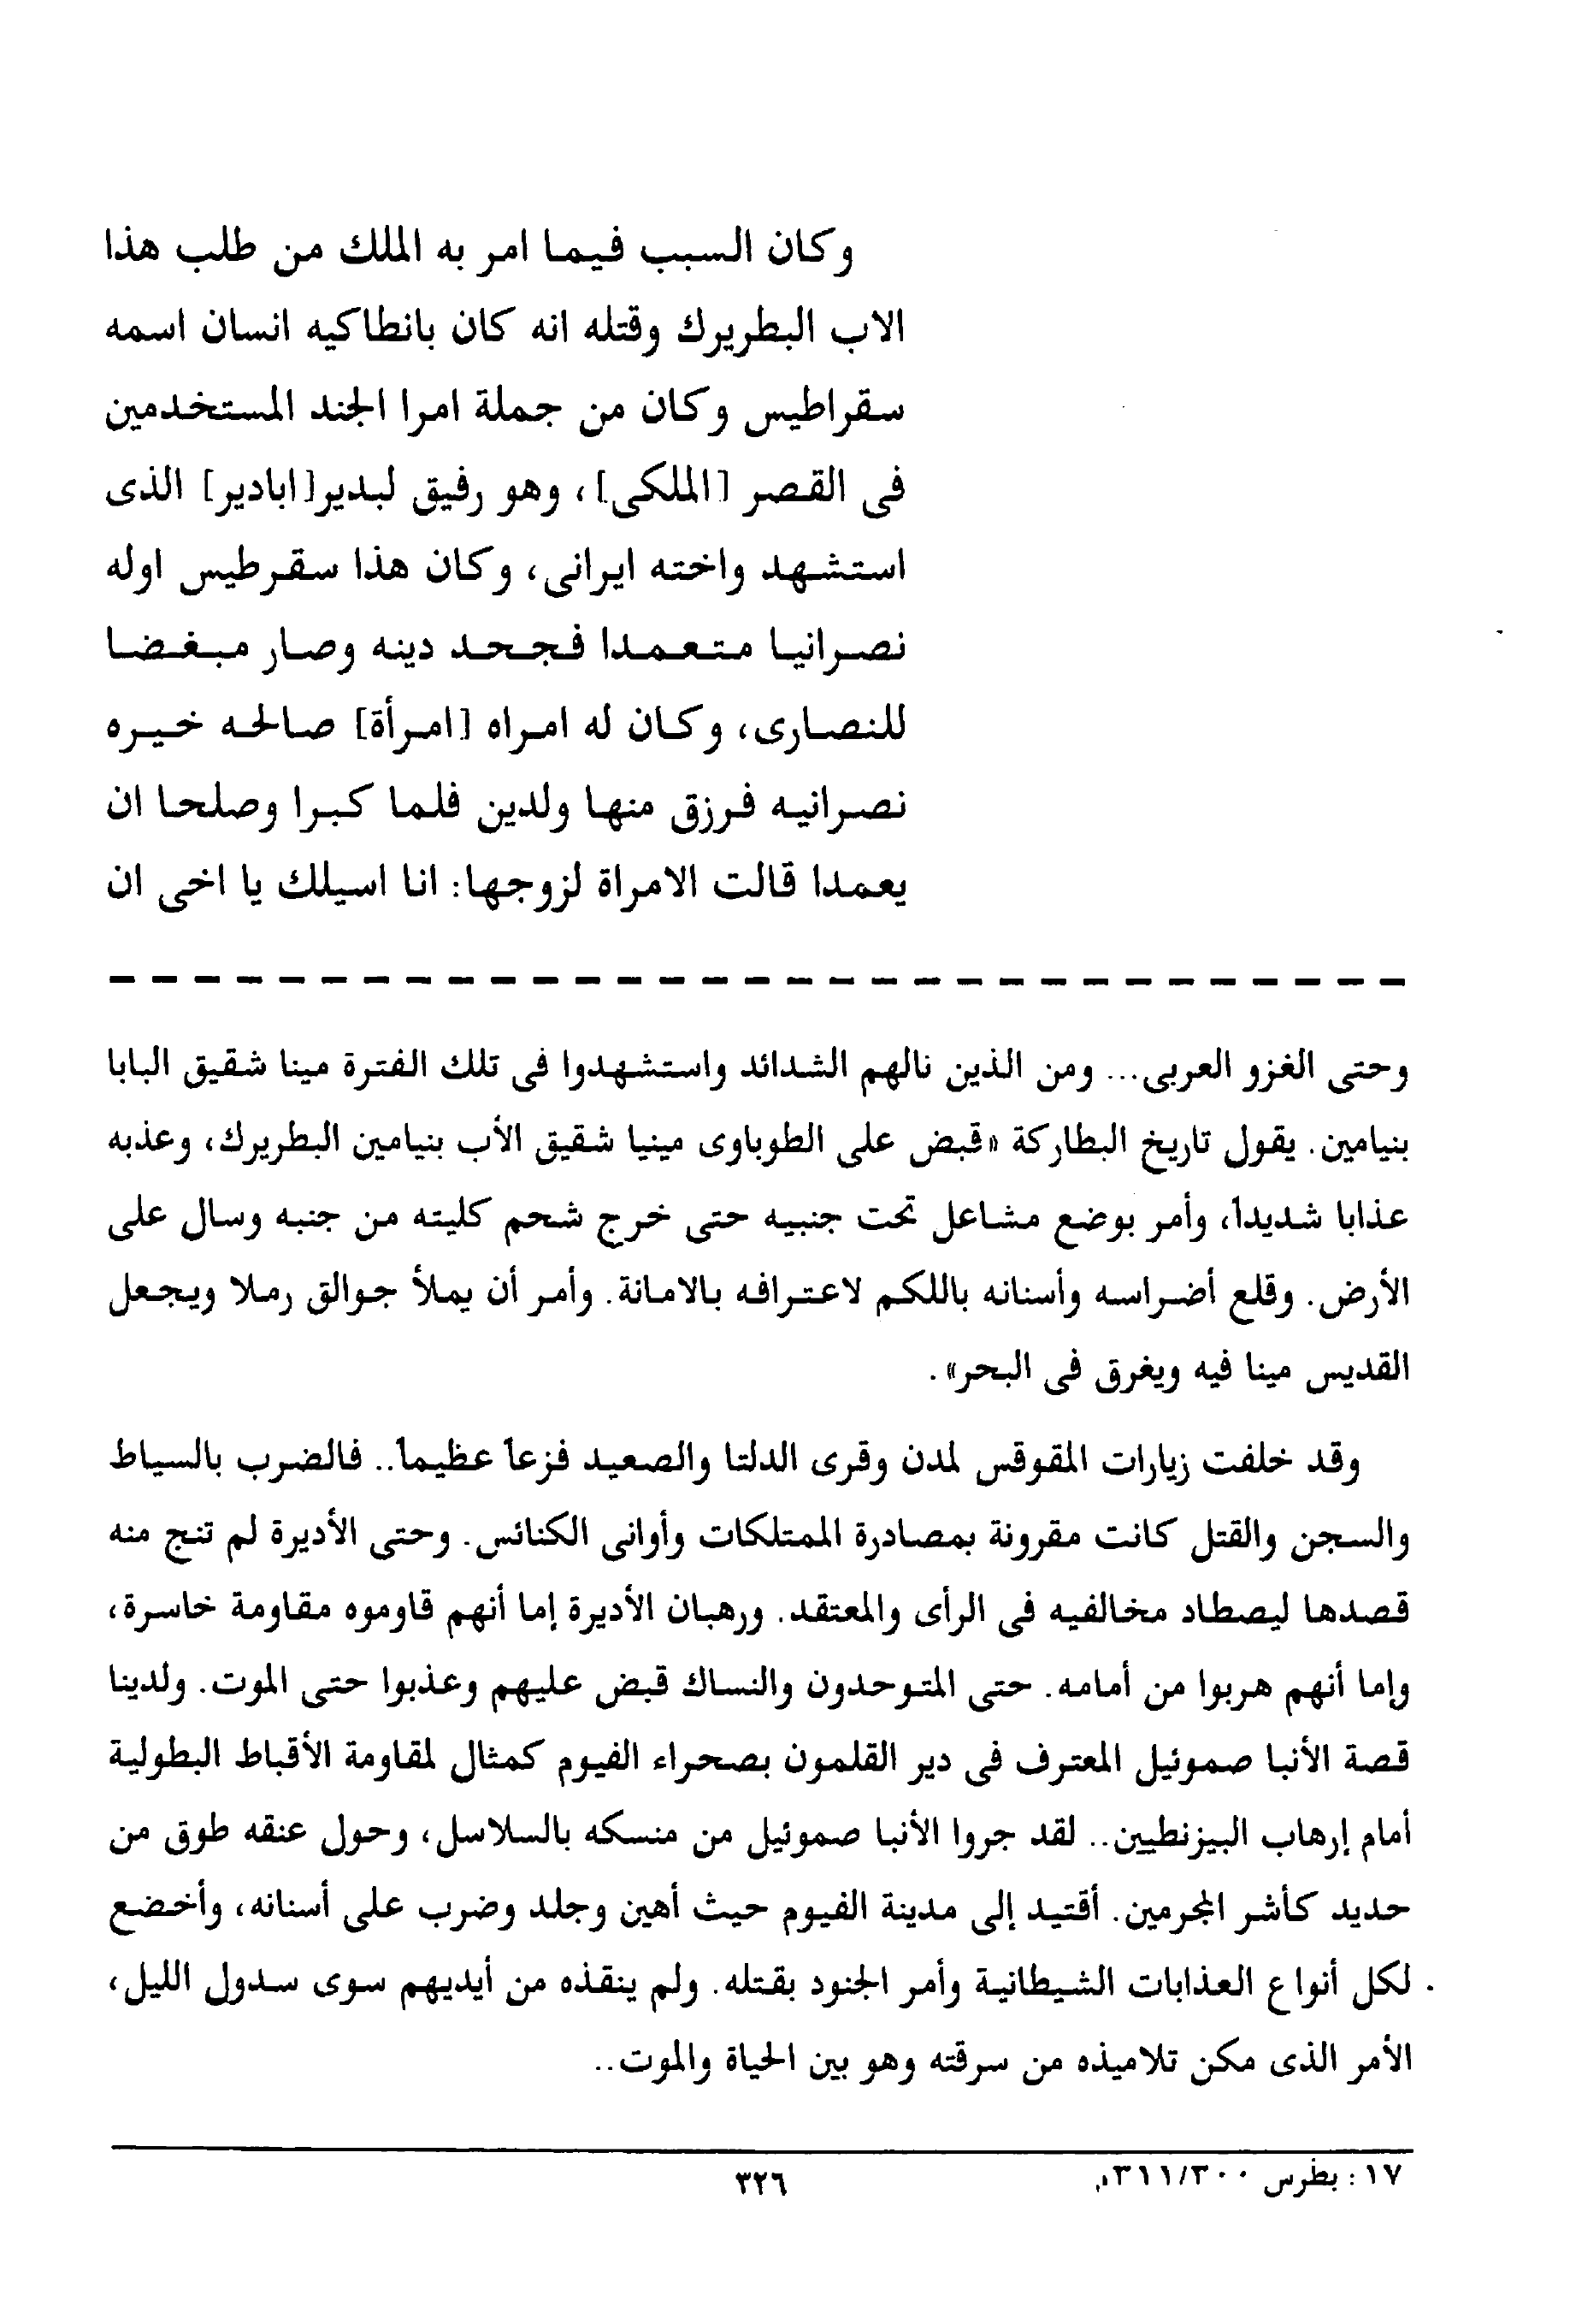 وكان السبب فيما امر به الملك من طلب هذا
الاب البطريرك وقتله انه كان بانطاكيه انسان اسمه
سقراطيس وكان من جملة امرا الجند المستخدمين
فى القصر [الملكى]، وهو رفيق لبدير[ابادير] الذى
استشهد واخته ايرانى، وكان هذا سقرطيس اوله
نصرانيا متعمدا فجحد دينه وصار مبغضا
للنصارى، وكان له امراه [امرأة] صالحه خيره
نصرانيه فرزق منها ولدين فلما كبرا وصلحا ان
يعمدا قالت الامراة لزوجها: انا اسيلك يا اخى ان
وحتى الغزو العربى... ومن الذين نالهم الشدائد واستشهدوا فى تلك الفترة مينا شقيق البابا
بنيامين. يقول تاريخ البطاركة «قبض على الطوباوى مينيا شقيق الأب بنيامين البطريرك، وعذبه
عذابا شديداً، وأمر بوضع مشاعل تحت جنبيه حتى خرج شحم كليته من جنبه وسال على
الأرض. وقلع أضراسه وأسنانه باللكم لاعترافه بالامانة. وأمر أن يملأ جوالق رملا ويجعل
القديس مينا فيه ويغرق فى البحر».
وقد خلفت زيارات المقوقس لمدن وقرى الدلتا والصعيد فزعاً عظيماً.. فالضرب بالسياط
والسجن والقتل كانت مقرونة بمصادرة الممتلكات وأوانى الكنائس. وحتى الأديرة لم تنج منه
قصدها ليصطاد مخالفيه فى الرأى والمعتقد. ورهبان الأديرة إما أنهم قاوموه مقاومة خاسرة،
وإما أنهم هربوا من أمامه. حتى المتوحدون والنساك قبض عليهم وعذبوا حتى الموت. ولدينا
قصة الأنبا صموئيل المعترف فى دير القلمون بصحراء الفيوم كمثال لمقاومة الأقباط البطولية
أمام إرهاب البيزنطيين.. لقد جروا الأنبا صموئيل من منسكه بالسلاسل، وحول عنقه طوق من
حديد كأشر المجرمين. أقتيد إلى مدينة الفيوم حيث أهين وجلد وضرب على أسنانه، وأخضع
لكل أنواع العذابات الشيطانية وأمر الجنود بقتله. ولم ينقذه من أيديهم سوى سدول الليل،
الأمر الذى مكن تلاميذه من سرقته وهو بين الحياة والموت..
١٧ : بطرس ٣١١/٣٠٠م
٣٢٦